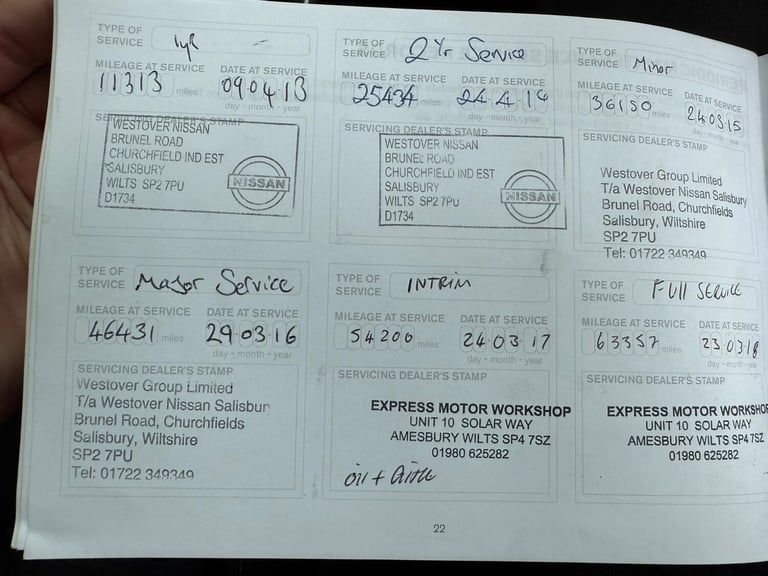 TYPE OF SERVICE 1yR -
MILEAGE AT SERVICE DATE AT SERVICE
11313 miles 09 04 13
day - month - year
SERVICING DEALER'S STAMP
WESTOVER NISSAN
BRUNEL ROAD
CHURCHFIELD IND EST
SALISBURY
WILTS SP2 7PU
D1734
NISSAN
TYPE OF SERVICE 2 Yr Service
MILEAGE AT SERVICE DATE AT SERVICE
25434 miles 24 4 14
day - month - year
SERVICING DEALER'S STAMP
WESTOVER NISSAN
BRUNEL ROAD
CHURCHFIELD IND EST
SALISBURY
WILTS SP2 7PU
D1734
NISSAN
TYPE OF SERVICE Minor
MILEAGE AT SERVICE DATE AT SERVICE
36150 miles 24 03 15
day - month - year
SERVICING DEALER'S STAMP
Westover Group Limited
T/a Westover Nissan Salisbury
Brunel Road, Churchfields
Salisbury, Wiltshire
SP2 7PU
Tel: 01722 349349
TYPE OF SERVICE Major Service
MILEAGE AT SERVICE DATE AT SERVICE
46431 miles 29 03 16
day - month - year
SERVICING DEALER'S STAMP
Westover Group Limited
T/a Westover Nissan Salisbur
Brunel Road, Churchfields
Salisbury, Wiltshire
SP2 7PU
Tel: 01722 349349
TYPE OF SERVICE INTRIM
MILEAGE AT SERVICE DATE AT SERVICE
54200 miles 24 03 17
day - month - year
SERVICING DEALER'S STAMP
EXPRESS MOTOR WORKSHOP
UNIT 10 SOLAR WAY
AMESBURY WILTS SP4 7SZ
01980 625282
oil +
TYPE OF SERVICE FULL SERVICE
MILEAGE AT SERVICE DATE AT SERVICE
63357 miles 23 03 18
day - month - year
SERVICING DEALER'S STAMP
EXPRESS MOTOR WORKSHOP
UNIT 10 SOLAR WAY
AMESBURY WILTS SP4 7SZ
01980 625282
22